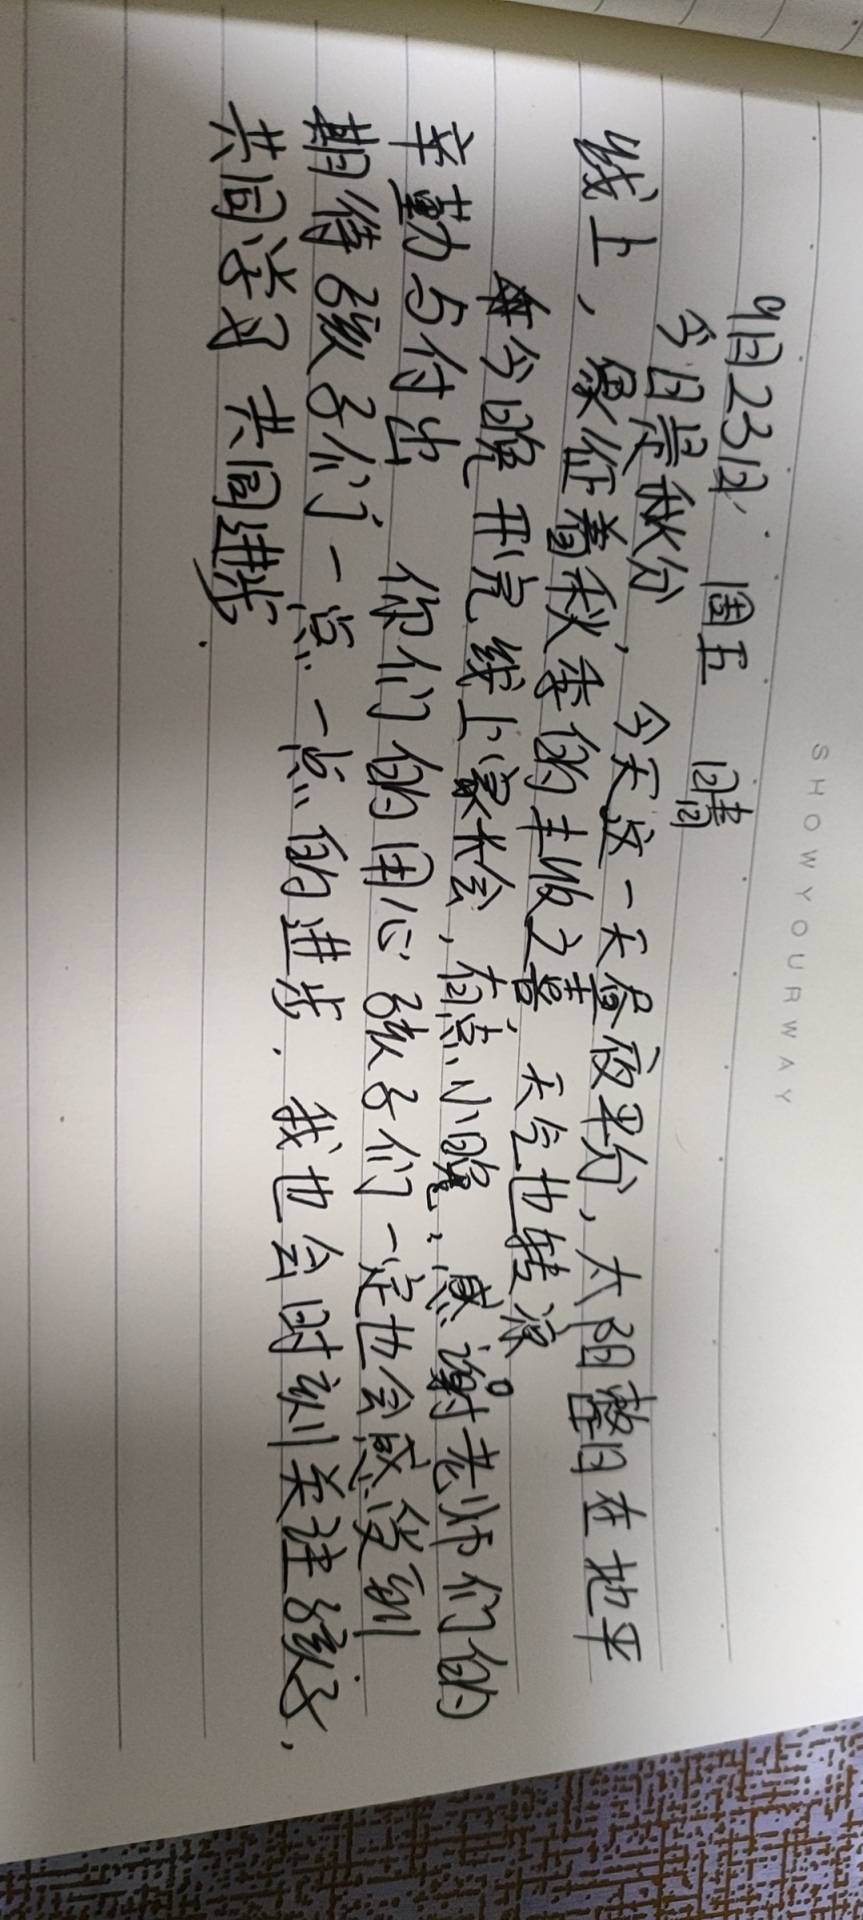 SHOWYOURWAY
9月23日. 周五 晴
今日是秋分, 今天这一天昼夜平分, 太阳整日在地平
线上, 象征着秋季的丰收之喜 天气也转凉。
今晚开完线上家长会, 有点小晚, 感谢老师们的
辛勤与付出 你们的用心孩子们一定也会感受到
期待孩子们一点一点的进步. 我也会时刻关注孩子,
共同学习 共同进步.